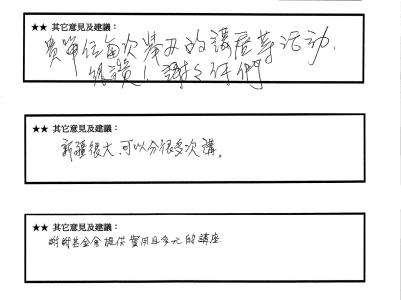 ★★ 其它意見及建議：
貴單位每次舉办的講座等活动,
很讚！謝々你們
★★ 其它意見及建議：
新疆很大,可以分很多次講。
★★ 其它意見及建議：
謝謝基金會提供實用且多元的講座